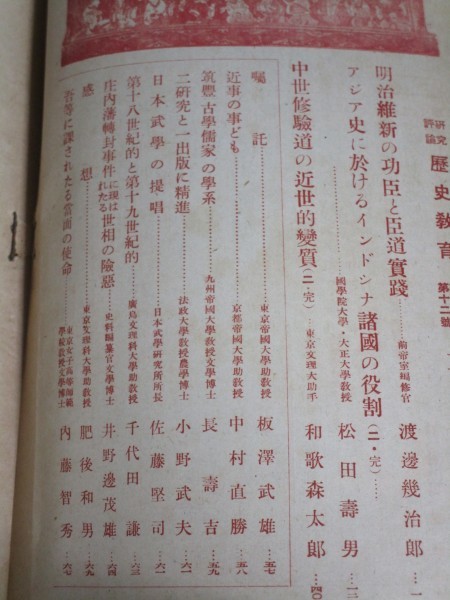 研究
評論
歷史教育
第十二號
明治維新の功臣と臣道實踐……前帝室編修官 渡邊幾治郎…一
アジア史に於けるインドシナ諸國の役割(二・完)……國學院大學・大正大學教授 松田壽男…一三
中世修驗道の近世的變質(二・完)…東京文理大助手 和歌森太郎…四〇
囑託……東京帝國大學助教授 板澤武雄…五七
近事の事ども……京都帝國大學助教授 中村直勝…五八
筑豐古學儒家の學系……九州帝國大學教授文學博士 長壽吉…五九
二研究と一出版に精進……法政大學教授農學博士 小野武夫…六一
日本武學の提唱……日本武學研究所所長 佐藤堅司…六一
第十八世紀的と第十九世紀的……廣島文理科大學助教授 千代田謙…六三
庄內藩轉封事件に現はれたる世相の險惡……史料編纂官文學博士 井野邊茂雄…六四
感想……東京文理科大學助教授 肥後和男…六九
吾等に課されたる當面の使命……東京女子高等師範學校教授文學博士 內藤智秀…六七